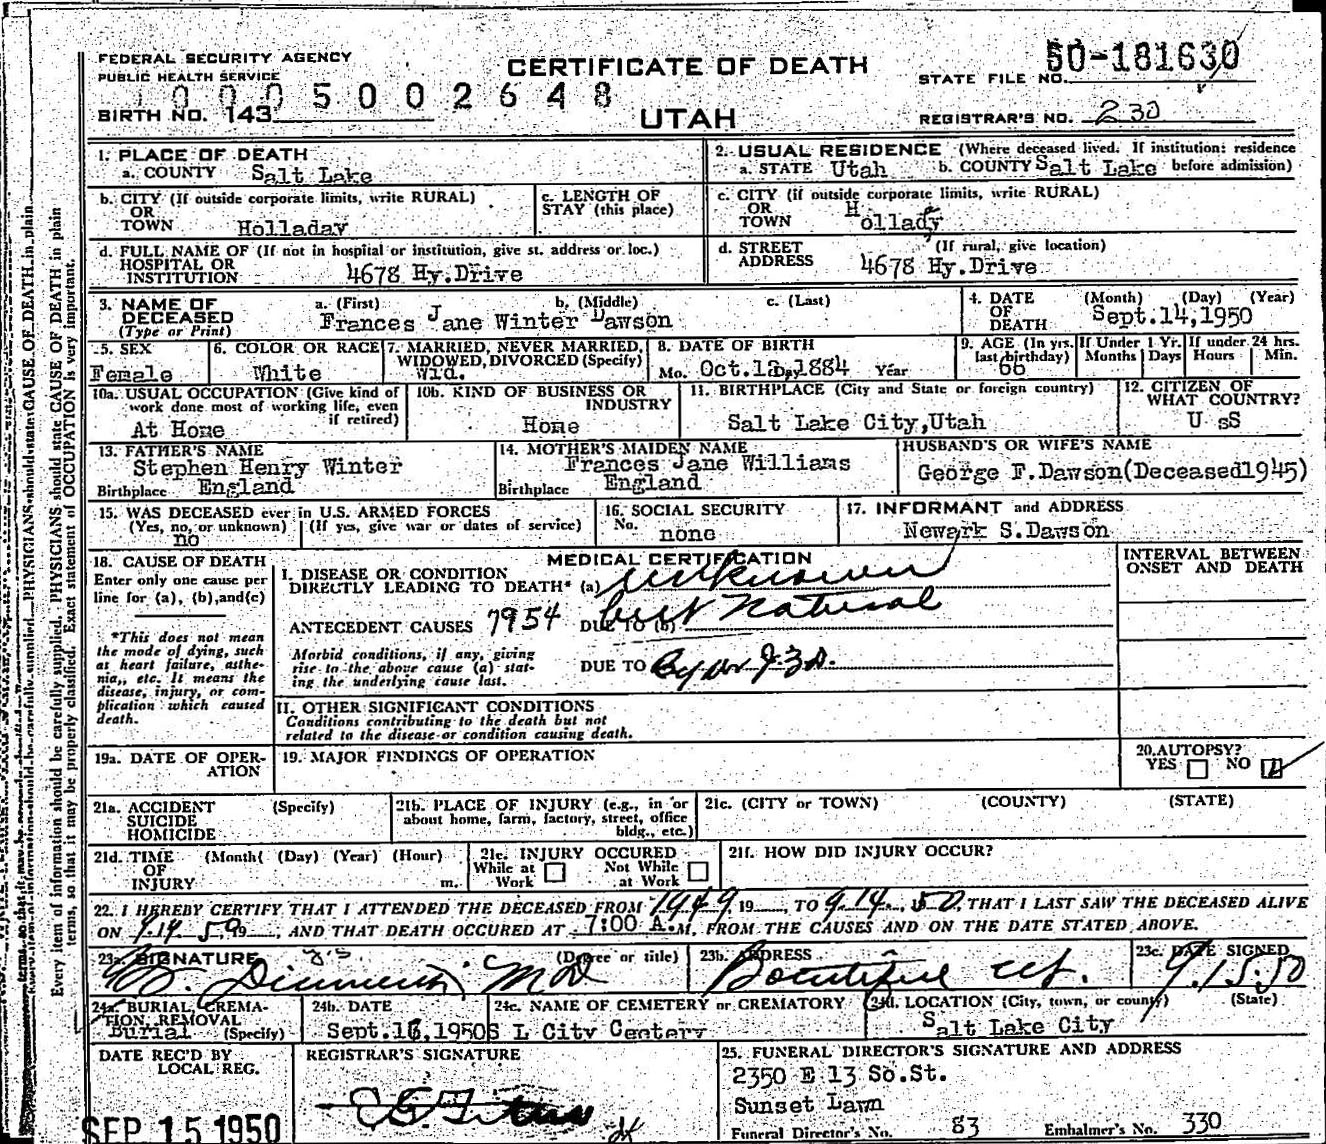 FEDERAL SECURITY AGENCY
PUBLIC HEALTH SERVICE
CERTIFICATE OF DEATH
UTAH
STATE FILE NO. 50-181630
1 0 0 0 5 0 0 2 6 4 8
BIRTH NO. 143
REGISTRAR'S NO. 230
1. PLACE OF DEATH
a. COUNTY Salt Lake
2. USUAL RESIDENCE (Where deceased lived. If institution: residence
a. STATE Utah b. COUNTY Salt Lake before admission)
b. CITY (If outside corporate limits, write RURAL)
OR
TOWN Holladay
c. LENGTH OF
STAY (this place)
c. CITY (If outside corporate limits, write RURAL)
OR
TOWN Hollady
d. FULL NAME OF (If not in hospital or institution, give st. address or loc.)
HOSPITAL OR
INSTITUTION 4678 Hy.Drive
d. STREET (If rural, give location)
ADDRESS 4678 Hy.Drive
3. NAME OF DECEASED
(Type or Print)
a. (First) b. (Middle) c. (Last)
Frances Jane Winter Dawson
4. DATE OF DEATH (Month) (Day) (Year)
Sept.14,1950
5. SEX
Female
6. COLOR OR RACE
White
7. MARRIED, NEVER MARRIED,
WIDOWED, DIVORCED (Specify)
Wid.
8. DATE OF BIRTH
Mo. Oct. 1884 Year
9. AGE (In yrs. last birthday)
66
If Under 1 Yr.
Months Days
If under 24 hrs.
Hours Min.
10a. USUAL OCCUPATION (Give kind of
work done most of working life, even
if retired)
At Home
10b. KIND OF BUSINESS OR
INDUSTRY
Home
11. BIRTHPLACE (City and State or foreign country)
Salt Lake City,Utah
12. CITIZEN OF
WHAT COUNTRY?
U sS
13. FATHER'S NAME
Stephen Henry Winter
Birthplace England
14. MOTHER'S MAIDEN NAME
Frances Jane Williams
Birthplace England
HUSBAND'S OR WIFE'S NAME
George F.Dawson(Deceased1945)
15. WAS DECEASED ever in U.S. ARMED FORCES
(Yes, no, or unknown) (If yes, give war or dates of service)
no
16. SOCIAL SECURITY
No. none
17. INFORMANT and ADDRESS
Newark S.Dawson
18. CAUSE OF DEATH
Enter only one cause per
line for (a), (b), and(c)
*This does not mean
the mode of dying, such
as heart failure, asthe-
nia,, etc. It means the
disease, injury, or com-
plication which caused
death.
MEDICAL CERTIFICATION
I. DISEASE OR CONDITION
DIRECTLY LEADING TO DEATH* (a) unknown
ANTECEDENT CAUSES 7954 DUE TO (b) but Natural
Morbid conditions, if any, giving
rise to the above cause (a) stat-
ing the underlying cause last.
DUE TO
INTERVAL BETWEEN
ONSET AND DEATH
II. OTHER SIGNIFICANT CONDITIONS
Conditions contributing to the death but not
related to the disease or condition causing death.
19a. DATE OF OPER-
ATION
19. MAJOR FINDINGS OF OPERATION
20. AUTOPSY?
YES NO
21a. ACCIDENT (Specify)
SUICIDE
HOMICIDE
21b. PLACE OF INJURY (e.g., in or
about home, farm, factory, street, office
bldg., etc.)
21c. (CITY or TOWN) (COUNTY) (STATE)
21d. TIME (Month( (Day) (Year) (Hour)
OF
INJURY m.
21e. INJURY OCCURED
While at Work Not While at Work
21f. HOW DID INJURY OCCUR?
22. I HEREBY CERTIFY THAT I ATTENDED THE DECEASED FROM 1949, 19 , TO 9.14., 50, THAT I LAST SAW THE DECEASED ALIVE
ON 9.14.50, AND THAT DEATH OCCURED AT 7:00 A.M. FROM THE CAUSES AND ON THE DATE STATED ABOVE.
23a. SIGNATURE (Degree or title) MD
23b. ADDRESS Bountiful
23c. DATE SIGNED 9.15.50
24a. BURIAL, CREMA-
TION, REMOVAL
Burial (Specify)
24b. DATE
Sept. ,1950
24c. NAME OF CEMETERY or CREMATORY
S L City Centery
24d. LOCATION (City, town, or county) (State)
Salt Lake City
DATE REC'D BY
LOCAL REG.
SEP 15 1950
REGISTRAR'S SIGNATURE
25. FUNERAL DIRECTOR'S SIGNATURE AND ADDRESS
2350 E 13 So.St.
Sunset Lawn
Funeral Director's No. 83 Embalmer's No. 330
Every item of information should be carefully supplied. PHYSICIANS should state CAUSE OF DEATH in plain
terms, so that it may be properly classified. Exact statement of OCCUPATION is very important.